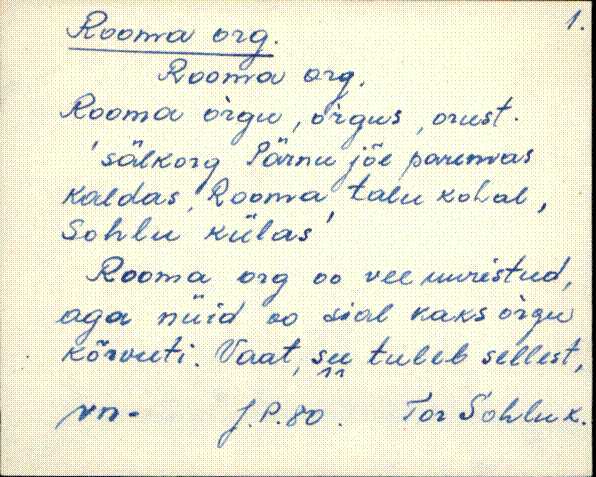 Rooma org. 1.
Rooma org.
Rooma òrgu, òrgus, orust.
'sälkorg Pärnu jõe paremas
kaldas, Rooma talu kohal,
Sohlu külas'
Rooma org oo vee uuristud,
aga nüid oo sial kaks òrgu
kõrvuti. Vaat, su tuleb sellest,
vn. J.P.80. Tor Sohlu k.